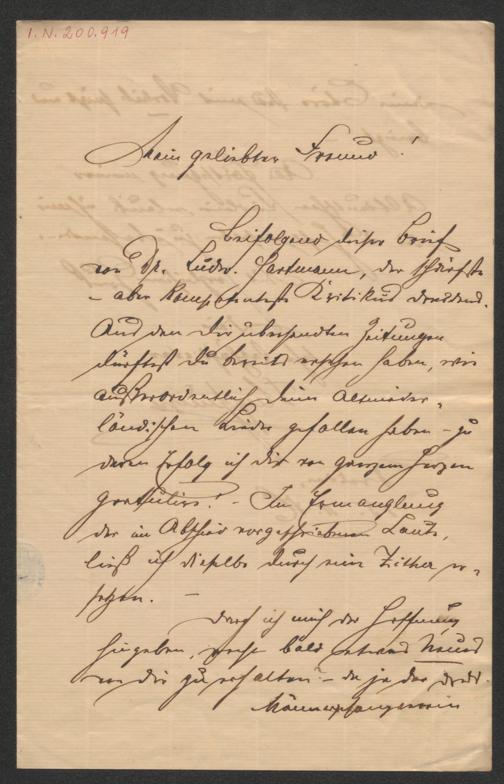 I.N. 200.919
Mein geliebter Freund!
Beifolgend dieser Brief
von Dr. Ludw. Hartmann, der schärfste
– aber kompetenteste Kritikus Dresdens.
Aus den Dir übersandten Zeitungen
dürftest Du bereits ersehen haben, wie
außerordentlich Deine Altnieder-
ländischen Lieder gefallen haben – zu
deren Erfolg ich Dir von ganzem Herzen
gratulire! – In Ermanglung
der im Abschied vorgeschriebenen Laute,
ließ ich dieselbe durch eine Zither er-
setzen. –
Darf ich mich der Hoffnung
hingeben, recht bald etwas Neues
von Dir zu erhalten? – da ja der Dresd.
Männergesangverein